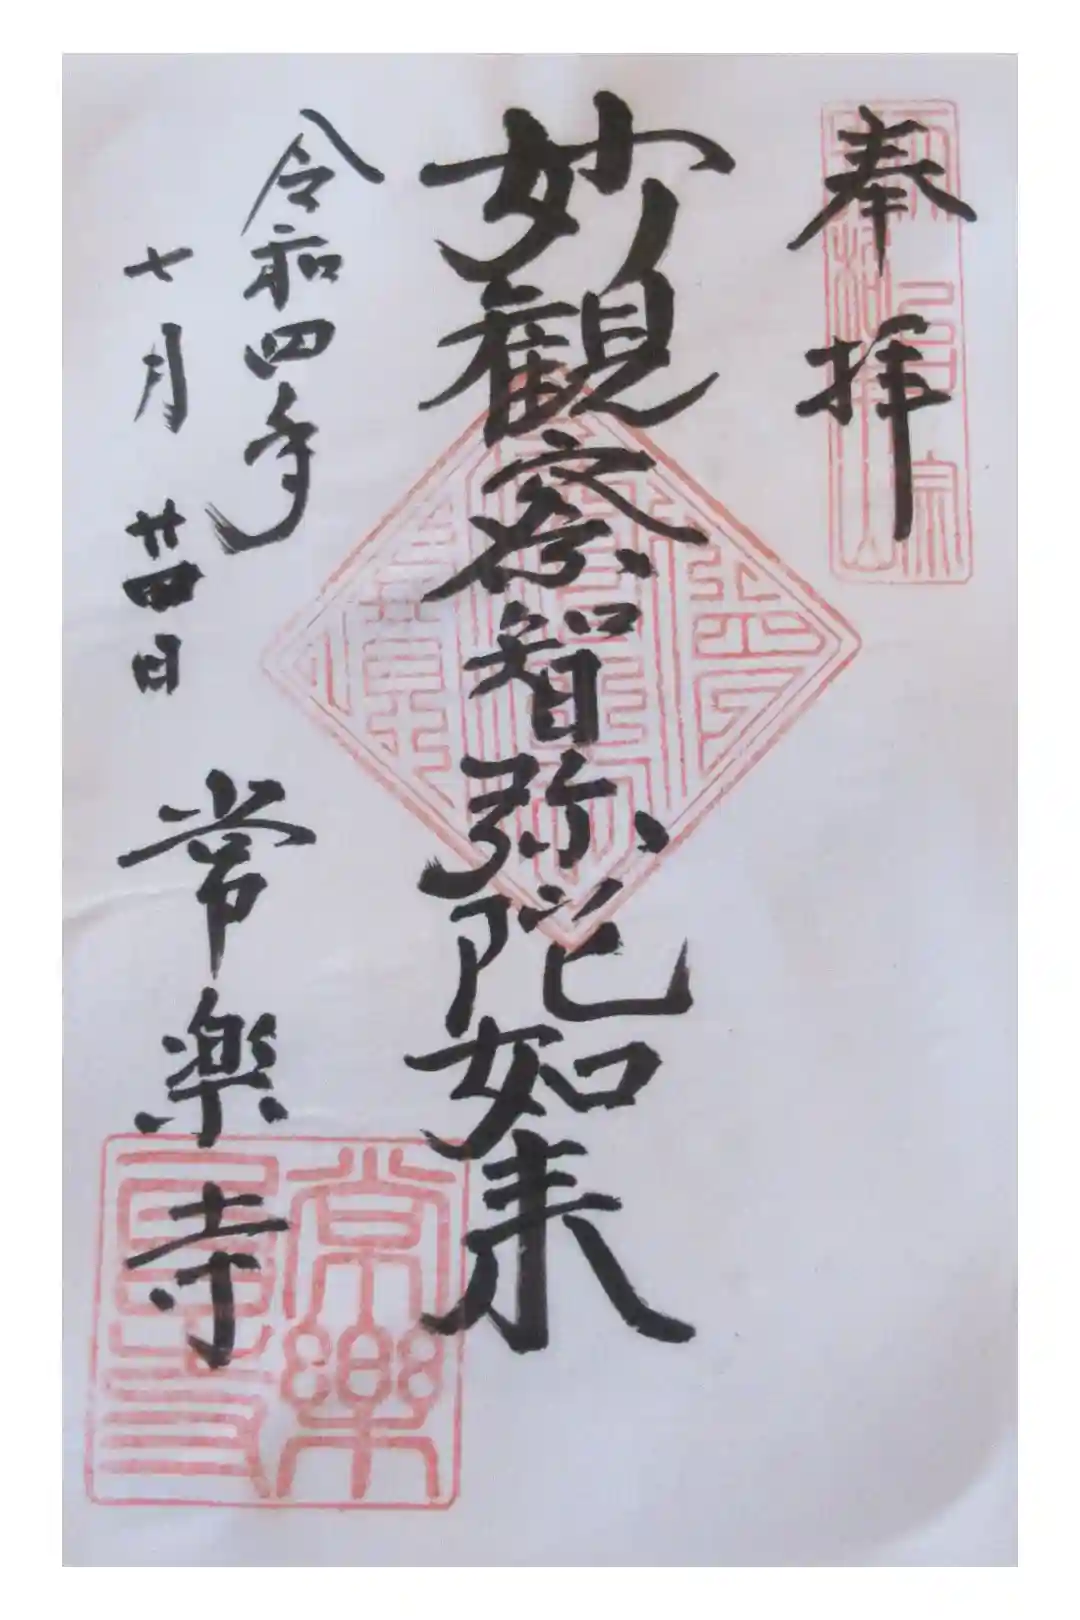 奉拝
妙観察智弥陀如来
令和四年
七月廿四日
常楽寺